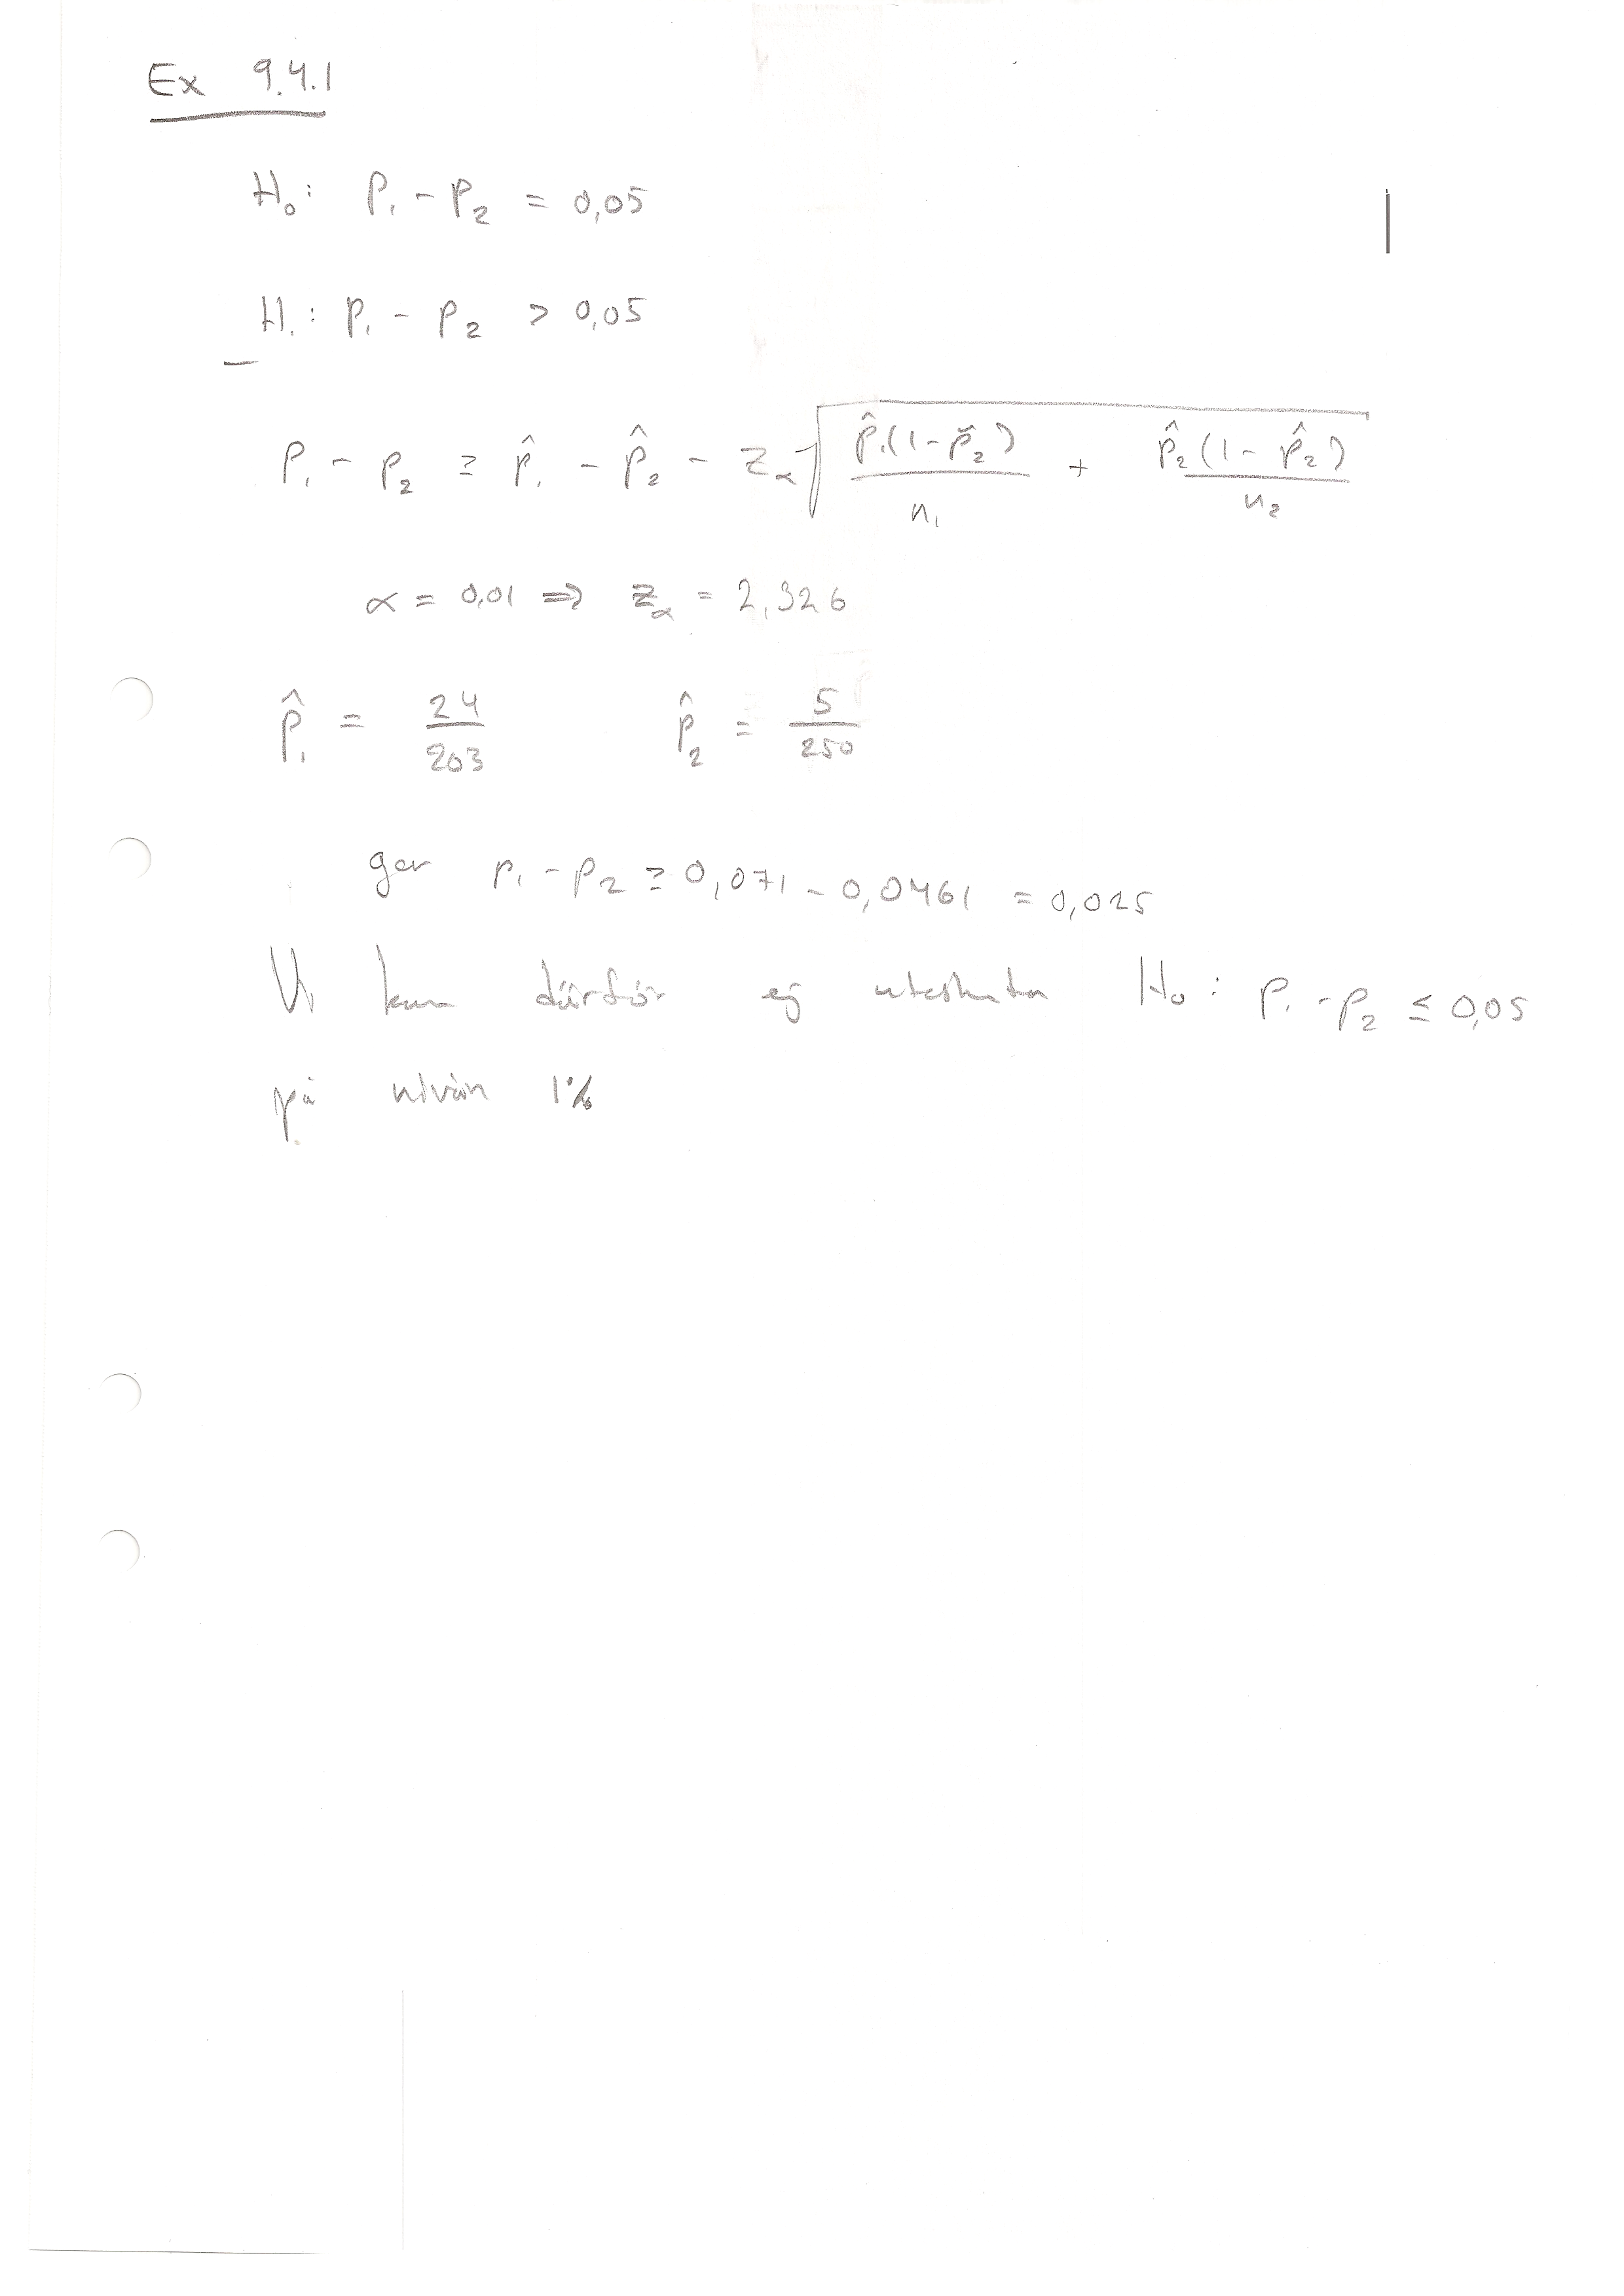 Ex 9.4.1
H₀: p₁ - p₂ = 0,05
H₁: p₁ - p₂ > 0,05
p₁ - p₂ ≥ p̂₁ - p̂₂ - z_α √( p̂₁(1-p̂₂)/n₁ + p̂₂(1-p̂₂)/n₂ )
α = 0,01 ⇒ z_α = 2,326
p̂₁ = 24/203 p̂₂ = 5/250
ger p₁ - p₂ ≥ 0,071 - 0,0461 = 0,025
Vi kan därför ej utesluta H₀: p₁ - p₂ ≤ 0,05
på nivån 1%